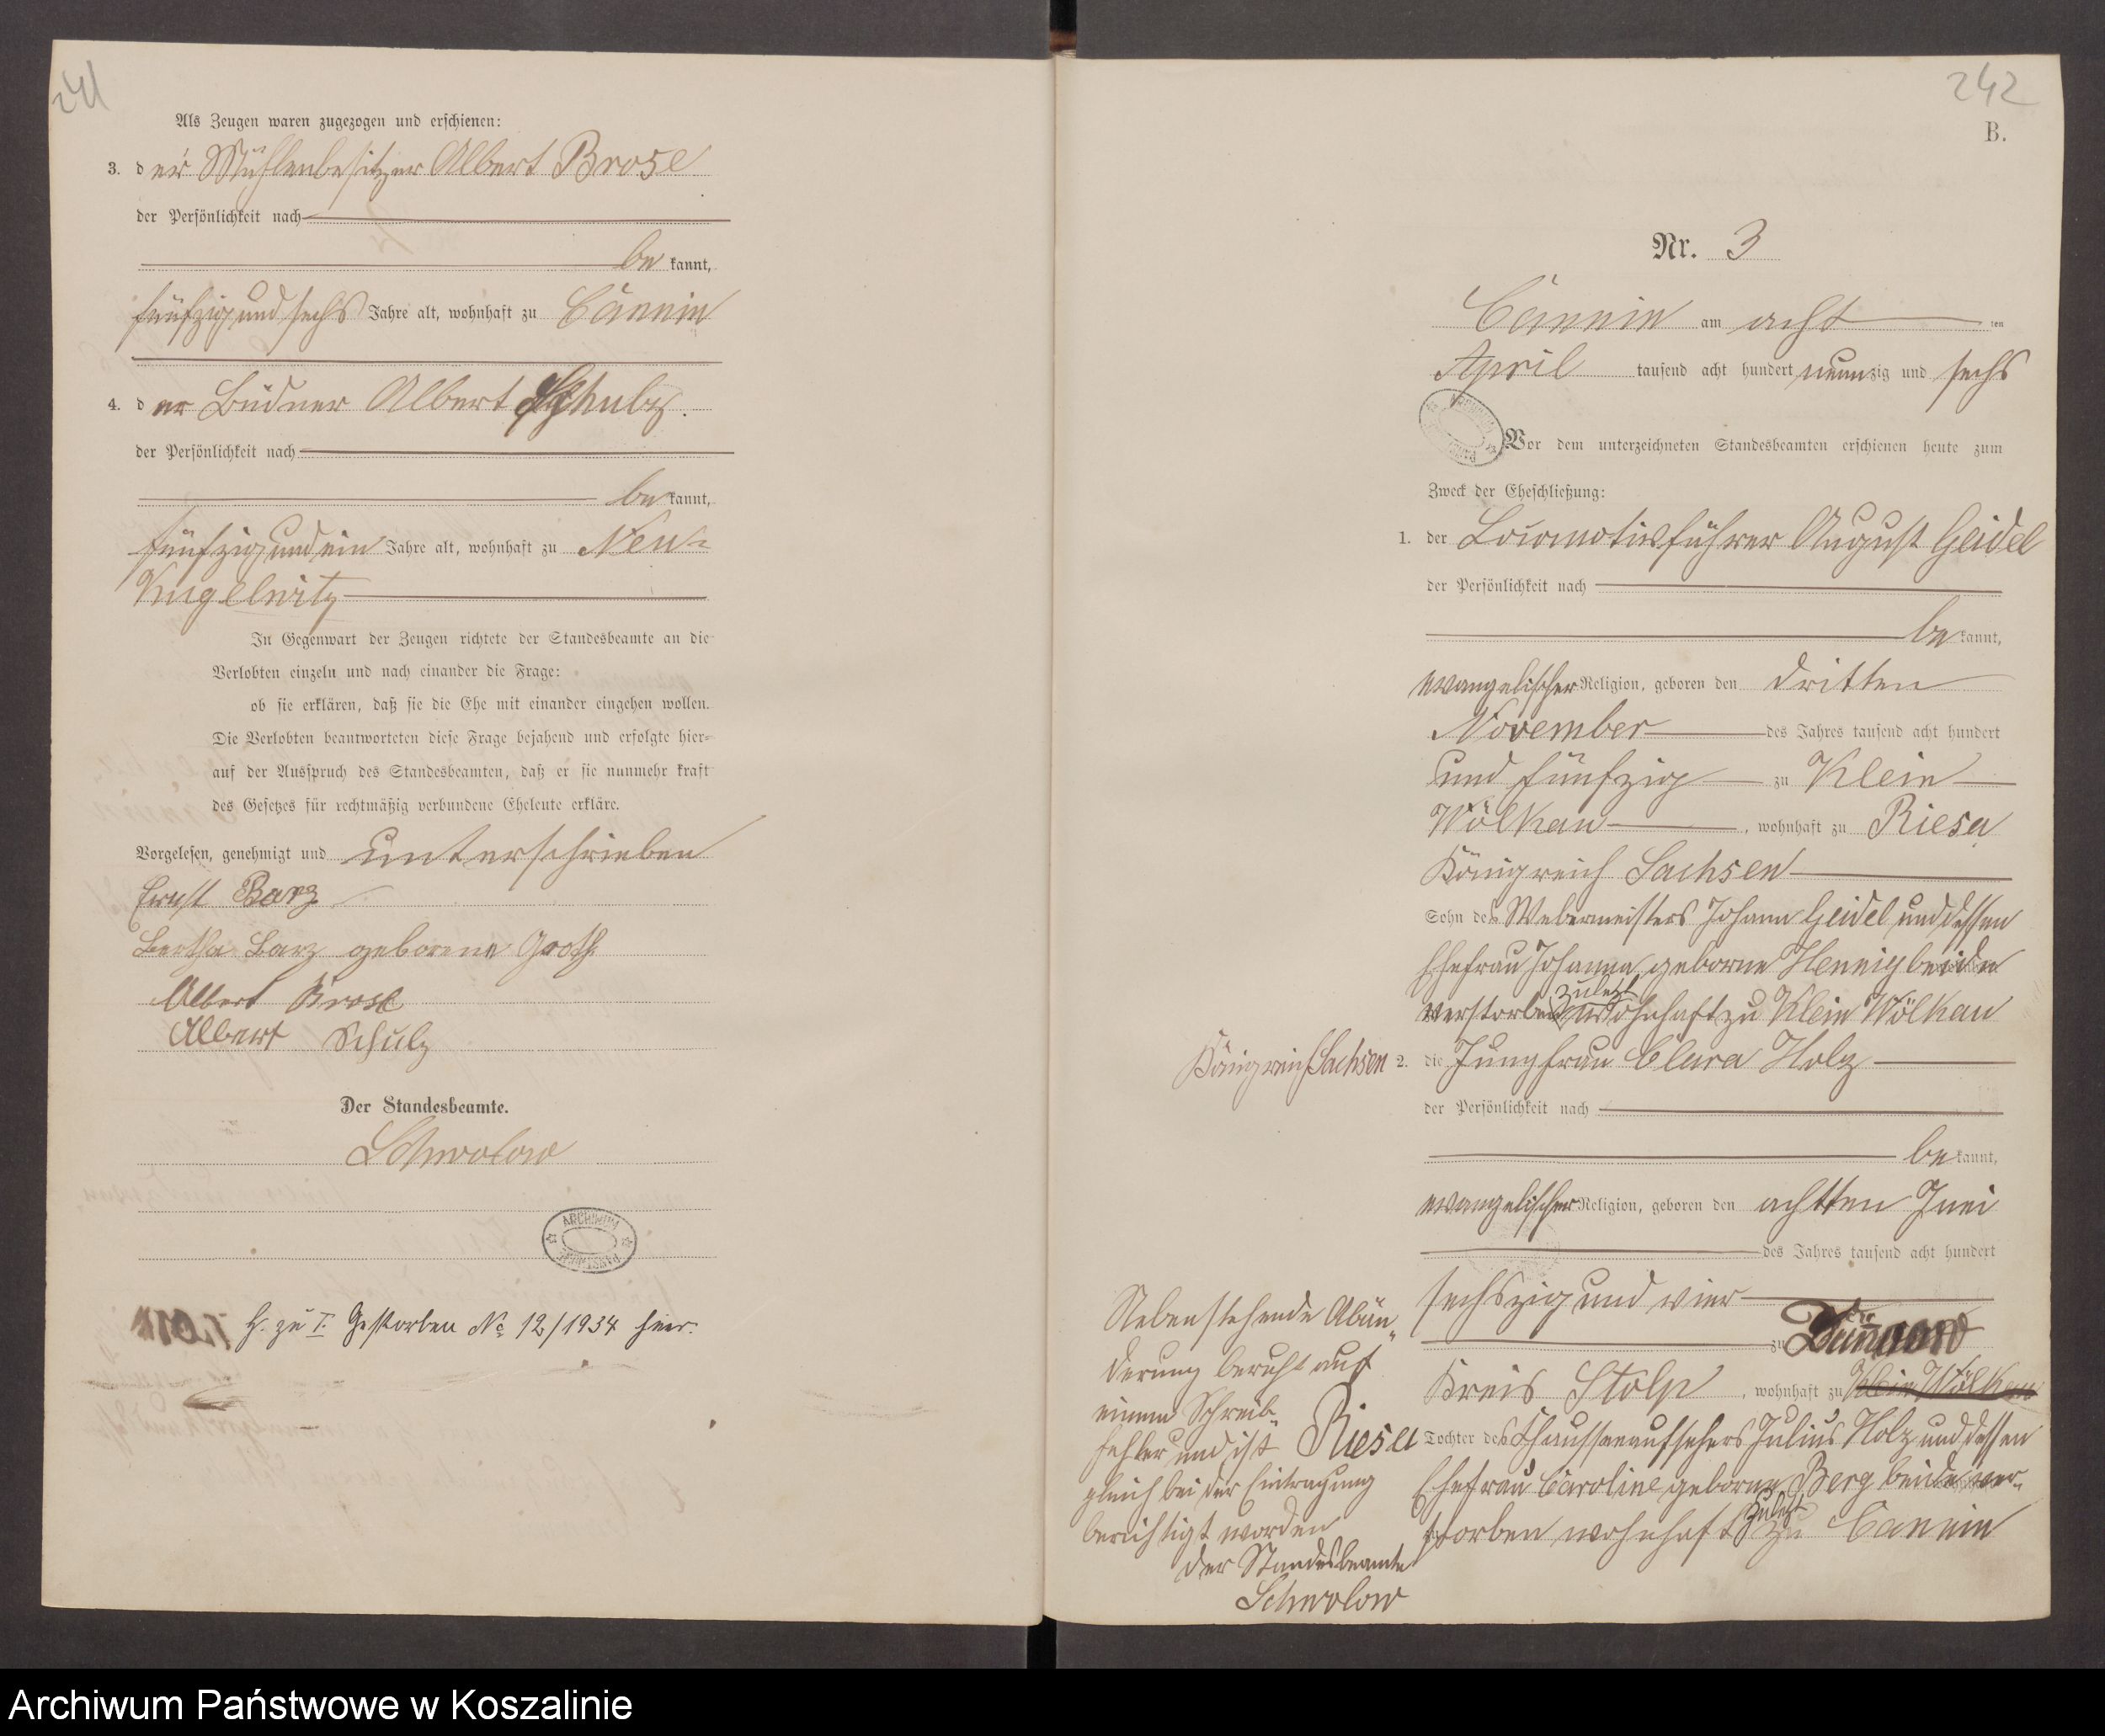 241
Als Zeugen waren zugezogen und erschienen:
3. der Mühlenbesitzer Albert Brose
der Persönlichkeit nach
be kannt,
fünfzig und sechs Jahre alt, wohnhaft zu Cannin
4. der Büdner Albert Schulz.
der Persönlichkeit nach
be kannt,
fünfzig und ein Jahre alt, wohnhaft zu Neu-
Kugelwitz
In Gegenwart der Zeugen richtete der Standesbeamte an die
Verlobten einzeln und nach einander die Frage:
ob sie erklären, daß sie die Ehe mit einander eingehen wollen.
Die Verlobten beantworteten diese Frage bejahend und erfolgte hier-
auf der Ausspruch des Standesbeamten, daß er sie nunmehr kraft
des Gesetzes für rechtmäßig verbundene Eheleute erkläre.
Vorgelesen, genehmigt und unterschrieben
Ernst Barz
Bertha Barz geborene Groth
Albert Brose
Albert Schulz
Der Standesbeamte.
Schwolow
ARCHIWUM PAŃSTWOWE
H. zu I. Gestorben No 12/1934 hier.
242
B.
Nr. 3
Cannin am acht ten
April tausend acht hundert neunzig und sechs
Vor dem unterzeichneten Standesbeamten erschienen heute zum
Zweck der Eheschließung:
1. der Locomotivführer August Geidel
der Persönlichkeit nach
be kannt,
evangelischer Religion, geboren den dritten
November des Jahres tausend acht hundert
und fünfzig zu Klein
Wölkau, wohnhaft zu Riesa
Königreich Sachsen
Sohn des Webermeisters Johann Geidel und dessen
Ehefrau Johanna geborne Hennig beide
zuletzt
verstorben wohnhaft zu Klein Wölkau
Königreich Sachsen
2. die Jungfrau Clara Holz
der Persönlichkeit nach
be kannt,
evangelischer Religion, geboren den achtten Juni
des Jahres tausend acht hundert
sechszig und vier
zu
Kreis Stolp, wohnhaft zu Klein Wölkau
Riesa Tochter des Chausseeaufsehers Julius Holz und dessen
Ehefrau Caroline geborne Berg beide ver-
zuletzt
storben wohnhaft zu Cannin
Nebenstehende Abän-
derung beruht auf
einem Schreib-
fehler und ist
gleich bei der Eintragung
berichtigt worden
Der Standesbeamte
Schwolow
Archiwum Państwowe w Koszalinie